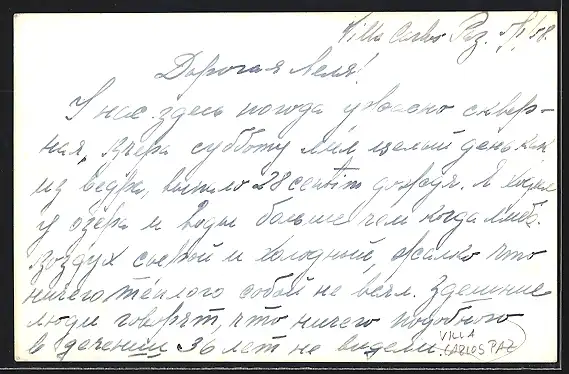 Villa Carlos Paz. 5/I/58.
Дорогая Леля!
У нас здесь погода ужасно сквер-
ная, вчера субботу лил целый день как
из ведра, выпало 28 centim дождя. Я ходил
у озера и воды больше чем когда либо.
Воздух сырой и холодный, жалко что
ничего тёплого собой не взял. Здешние
люди говорят, что ничего подобного
в дечении 36 лет не видели.
VILLA
CARLOS PAZ